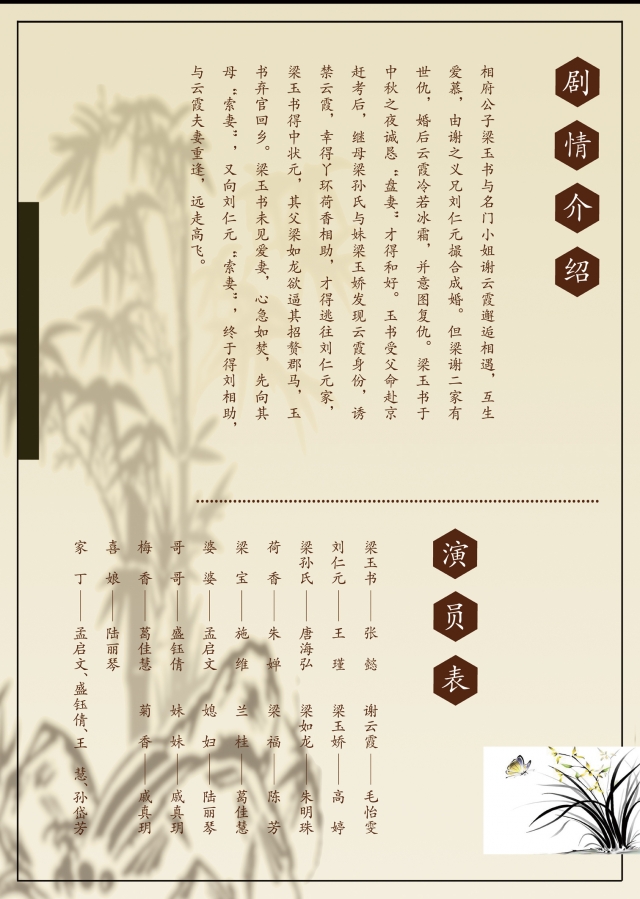 剧情介绍
相府公子梁玉书与名门小姐谢云霞邂逅相遇，互生
爱慕，由谢之义兄刘仁元撮合成婚。但梁谢二家有
世仇，婚后云霞冷若冰霜，并意图复仇。梁玉书于
中秋之夜诚恳“盘妻”才得和好。玉书受父命赴京
赶考后，继母梁孙氏与妹梁玉娇发现云霞身份，诱
禁云霞，幸得丫环荷香相助，才得逃往刘仁元家，
梁玉书得中状元，其父梁如龙欲逼其招赘郡马，玉
书弃官回乡。梁玉书未见爱妻，心急如焚，先向其
母“索妻”，又向刘仁元“索妻”，终于得刘相助，
与云霞夫妻重逢，远走高飞。
演员表
梁玉书——张 懿 谢云霞——毛怡雯
刘仁元——王 瑾 梁玉娇——高 婷
梁孙氏——唐海弘 梁如龙——朱明珠
荷 香——朱 婵 梁 福——陈 芳
梁 宝——施 维 兰 桂——葛佳慧
婆 婆——孟启文 媳 妇——陆丽琴
哥 哥——盛钰倩 妹 妹——戚真玥
梅 香——葛佳慧 菊 香——戚真玥
喜 娘——陆丽琴
家 丁——孟启文、盛钰倩、王 慧、孙岱芳